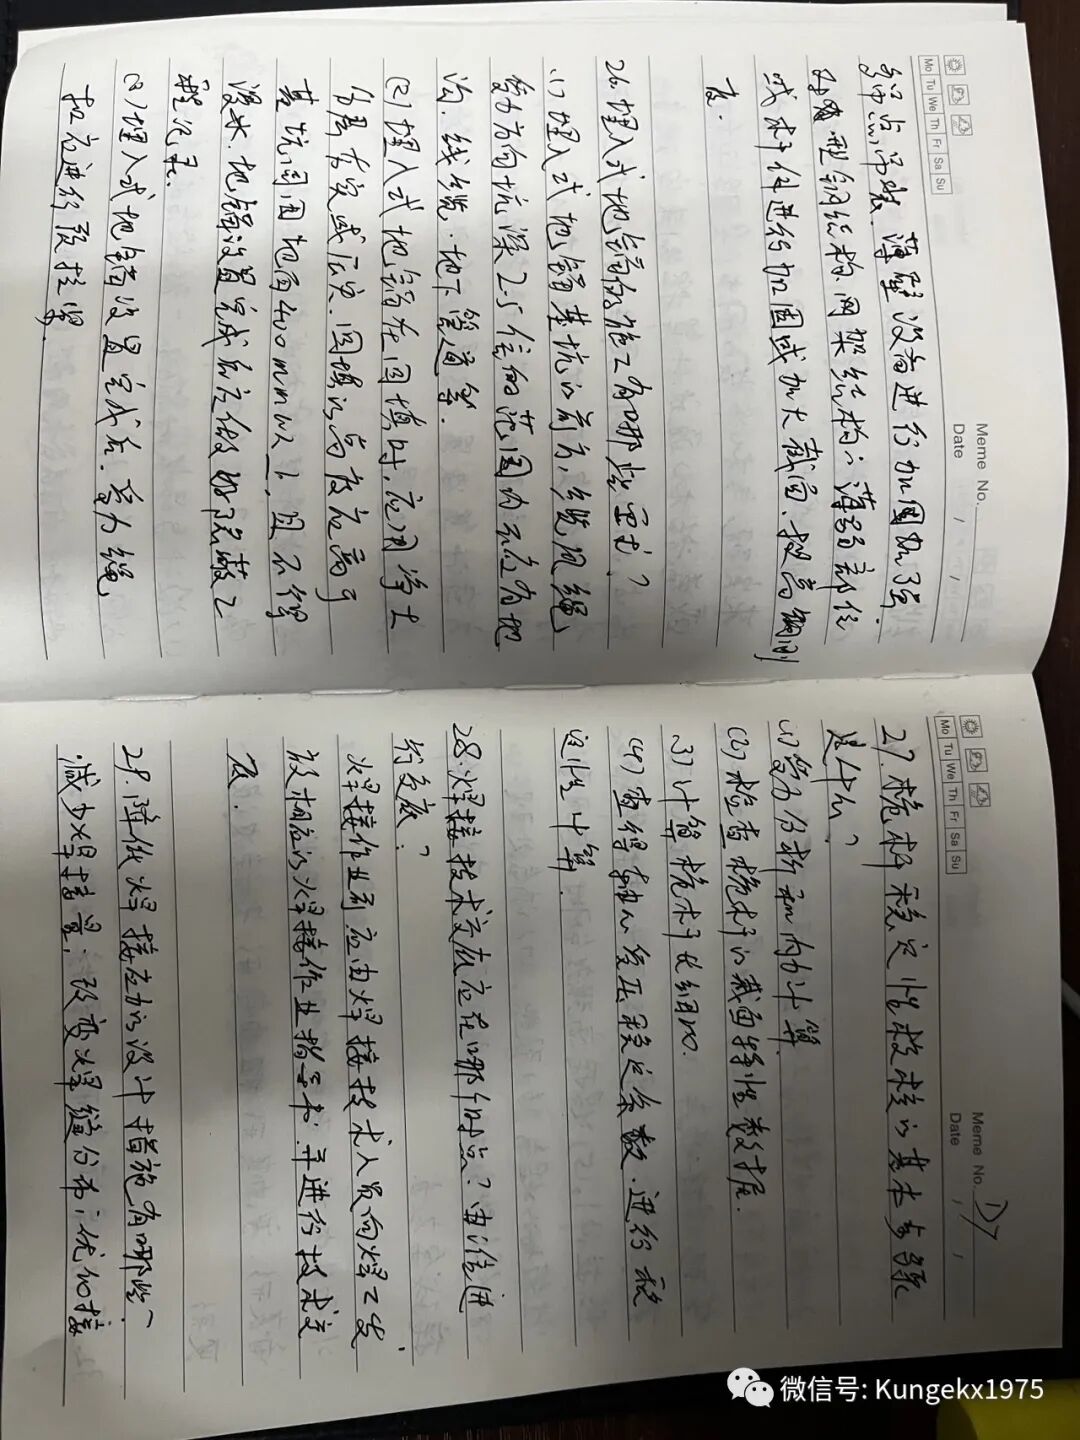 Mo Tu We Th Fr Sa Su
Meme No.
Date / /
多吊点吊装. 薄壁设备进行加固加强
对大型钢结构、网架结构的薄弱部位
或杆件进行加固或加大截面、提高钢刚
度.
26. 埋入式地锚的施工有哪些要求?
(1) 埋入式地锚基坑的前方, 缆风绳
受力方向坑深2.5倍的范围内不应有地
沟. 线缆. 地下管道等.
(2) 埋入式地锚在回填时, 应用净土
分层夯实或压实. 回填的高度应高于
基坑周围地面400mm以上, 且不得
浸水. 地锚设置完成后应做好隐蔽工
程记录.
(3) 埋入式地锚设置完成后. 受力绳
扣应进行预拉紧.
Mo Tu We Th Fr Sa Su
Meme No.
Date / /
27. 桅杆稳定性校核的基本步骤
是什么?
(1) 受力分析和内力计算.
(2) 检查桅杆的截面特性数据.
(3) 计算桅杆长细比.
(4) 查得轴心受压稳定系数. 进行稳
定性计算.
28. 焊接技术交底应在哪个时点? 由谁进
行交底?
焊接作业前应由焊接技术人员向焊工发
放相应的焊接作业指导书. 并进行技术交
底.
29. 降低焊接应力的设计措施有哪些?
减少焊接量. 改变焊缝分布; 优化接
微信号: Kungekx1975